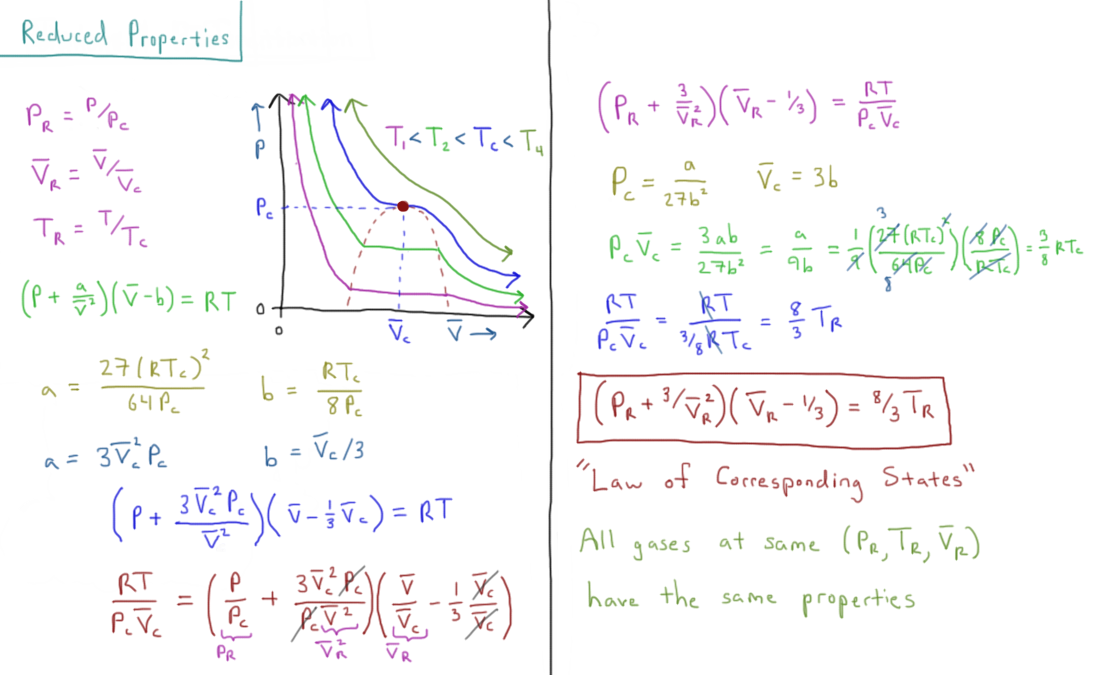 Reduced Properties
P_R = P/P_c
V̄_R = V̄/V̄_c
T_R = T/T_c
(P + a/V̄²)(V̄ - b) = RT
↑
P
P_c
0
0
V̄_c
V̄ →
T₁ < T₂ < T_c < T₄
a = 27(RT_c)²/64P_c
b = RT_c/8P_c
a = 3V̄_c²P_c
b = V̄_c/3
(P + 3V̄_c²P_c/V̄²)(V̄ - 1/3 V̄_c) = RT
RT/P_cV̄_c = (P/P_c + 3V̄_c²P_c/P_cV̄²)(V̄/V̄_c - 1/3 V̄_c/V̄_c)
P_R V̄_R² V̄_R
(P_R + 3/V̄_R²)(V̄_R - 1/3) = RT/P_cV̄_c
P_c = a/27b² V̄_c = 3b
P_cV̄_c = 3ab/27b² = a/9b = 1/9 (27(RT_c)²/64P_c)(8P_c/RT_c) = 3/8 RT_c
3
8
RT/P_cV̄_c = RT/3/8RT_c = 8/3 T_R
(P_R + 3/V̄_R²)(V̄_R - 1/3) = 8/3 T_R
"Law of Corresponding States"
All gases at same (P_R, T_R, V̄_R)
have the same properties